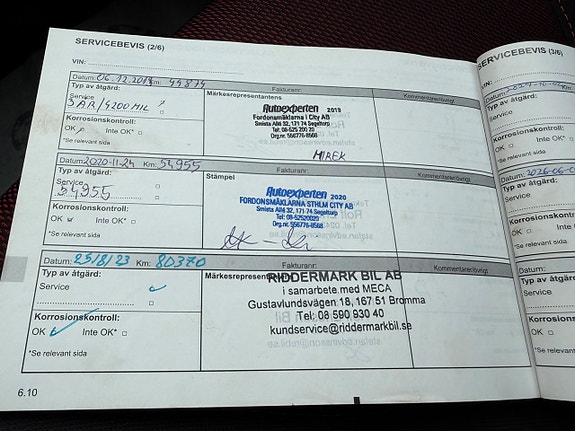 SERVICEBEVIS (2/6)
VIN:
Datum: 06.12.2019 Km: 44874
Fakturanr:
Typ av åtgärd:
Märkesrepresentantens
Kommentarer/övrigt
Service
5 ÅR/4200 MIL
Autoexperten 2019
Fordonsmäklarna i City AB
Smista Allé 32, 171 74 Segeltorp
Tel: 08-525 200 20
Org.nr. 556776-8568
Korrosionskontroll:
OK Inte OK*
*Se relevant sida
MIREK
Datum: 2020-11-24 Km: 54955
Fakturanr:
Typ av åtgärd:
Stämpel
Kommentarer/övrigt
Service
54955
Autoexperten 2020
FORDONSMÄKLARNA STHLM CITY AB
Smista Allé 32, 171 74 Segeltorp
Tel: 08-52520020
Org.nr. 556776-8568
Korrosionskontroll:
OK Inte OK*
*Se relevant sida
Datum: 25/8/23 Km: 80370
Fakturanr:
Typ av åtgärd:
Märkesrepresentantens
Kommentarer/övrigt
Service
RIDDERMARK BIL AB
i samarbete med MECA
Gustavlundsvägen 18, 167 51 Bromma
Tel: 08 590 930 40
kundservice@riddermarkbil.se
Korrosionskontroll:
OK Inte OK*
*Se relevant sida
6.10
SERVICEBEVIS (3/6)
VIN:
Datum:
Typ av åtgärd:
Service
Korrosionskontroll:
OK Inte OK*
*Se relevant sida
Datum:
Typ av åtgärd:
Service
Korrosionskontroll:
OK Inte OK
*Se relevant sida
Datum:
Typ av åtgärd:
Service
Korrosionskontroll:
OK Inte OK
*Se relevant sida